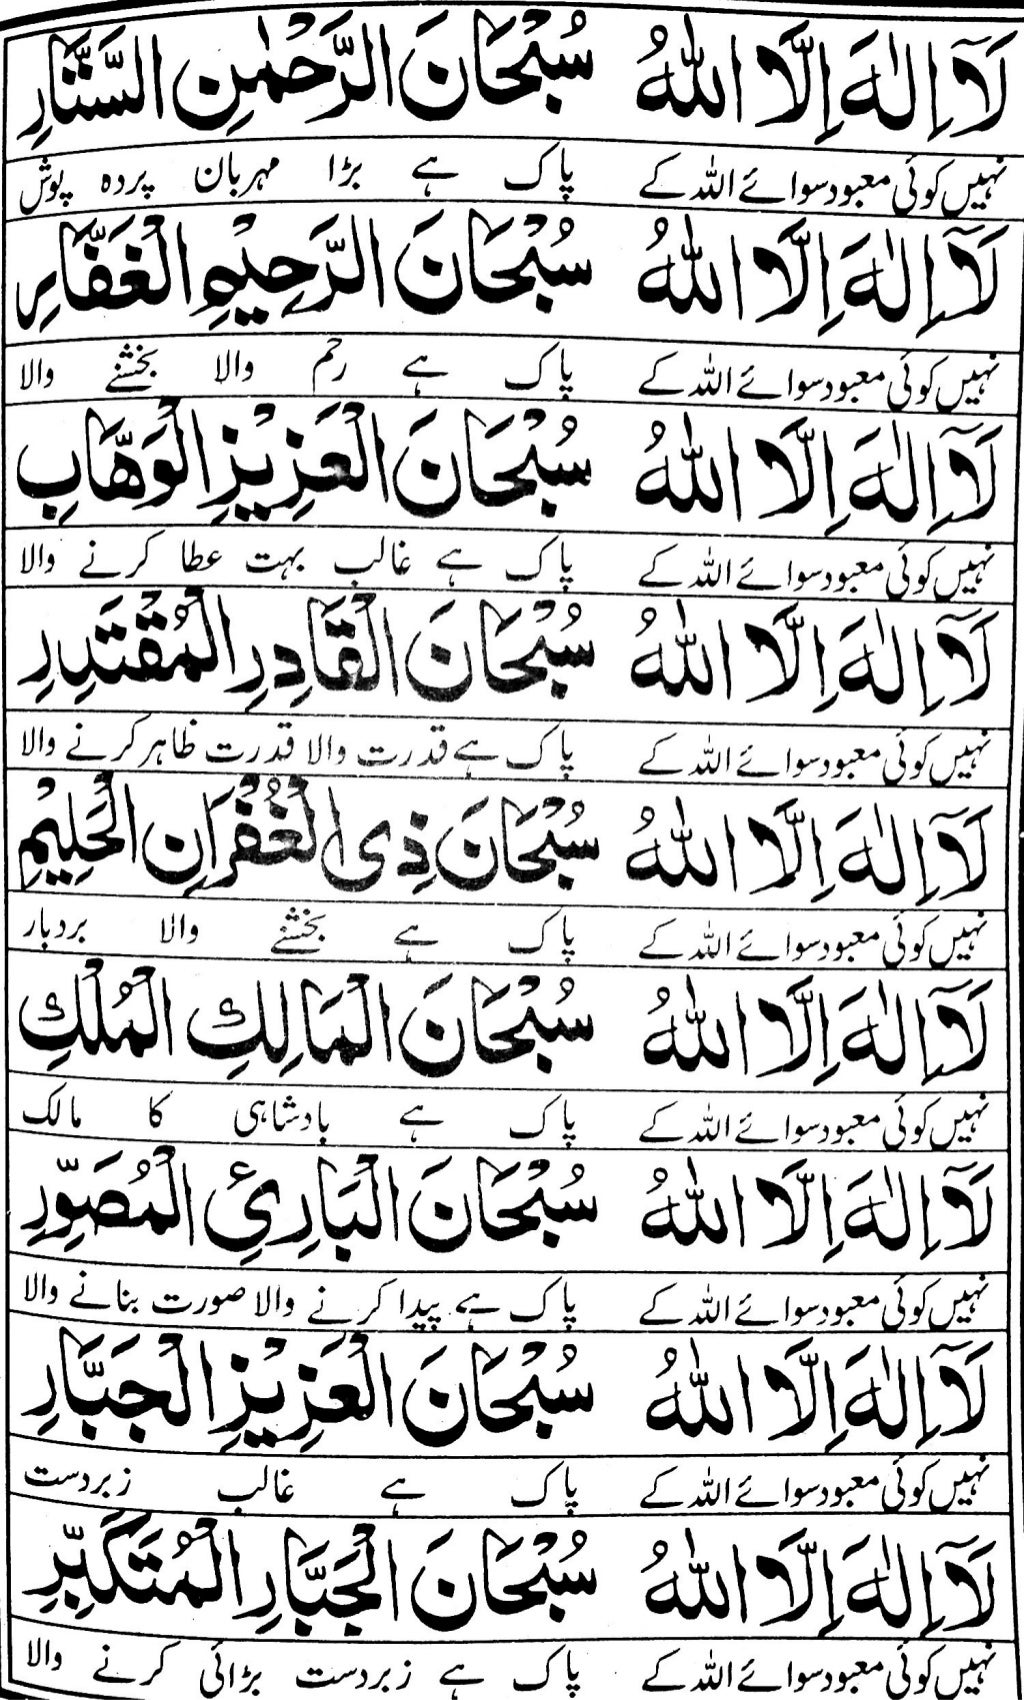 لَآ اِلٰهَ اِلَّا اللّٰهُ سُبْحَانَ الرَّحْمٰنِ السَّتَّارِ
نہیں کوئی معبود سوائے اللہ کے پاک ہے بڑا مہربان پردہ پوش
لَآ اِلٰهَ اِلَّا اللّٰهُ سُبْحَانَ الرَّحِيْمِ الْغَفَّارِ
نہیں کوئی معبود سوائے اللہ کے پاک ہے رحم والا بخشنے والا
لَآ اِلٰهَ اِلَّا اللّٰهُ سُبْحَانَ الْعَزِيْزِ الْوَهَّابِ
نہیں کوئی معبود سوائے اللہ کے پاک ہے غالب بہت عطا کرنے والا
لَآ اِلٰهَ اِلَّا اللّٰهُ سُبْحَانَ الْقَادِرِ الْمُقْتَدِرِ
نہیں کوئی معبود سوائے اللہ کے پاک ہے قدرت والا قدرت ظاہر کرنے والا
لَآ اِلٰهَ اِلَّا اللّٰهُ سُبْحَانَ ذِی الْغُفْرَانِ الْحَلِيْمِ
نہیں کوئی معبود سوائے اللہ کے پاک ہے بخشنے والا بردبار
لَآ اِلٰهَ اِلَّا اللّٰهُ سُبْحَانَ الْمَالِكِ الْمُلْكِ
نہیں کوئی معبود سوائے اللہ کے پاک ہے بادشاہی کا مالک
لَآ اِلٰهَ اِلَّا اللّٰهُ سُبْحَانَ الْبَارِئِ الْمُصَوِّرِ
نہیں کوئی معبود سوائے اللہ کے پاک ہے پیدا کرنے والا صورت بنانے والا
لَآ اِلٰهَ اِلَّا اللّٰهُ سُبْحَانَ الْعَزِيْزِ الْجَبَّارِ
نہیں کوئی معبود سوائے اللہ کے پاک ہے غالب زبردست
لَآ اِلٰهَ اِلَّا اللّٰهُ سُبْحَانَ الْجَبَّارِ الْمُتَكَبِّرِ
نہیں کوئی معبود سوائے اللہ کے پاک ہے زبردست بڑائی کرنے والا